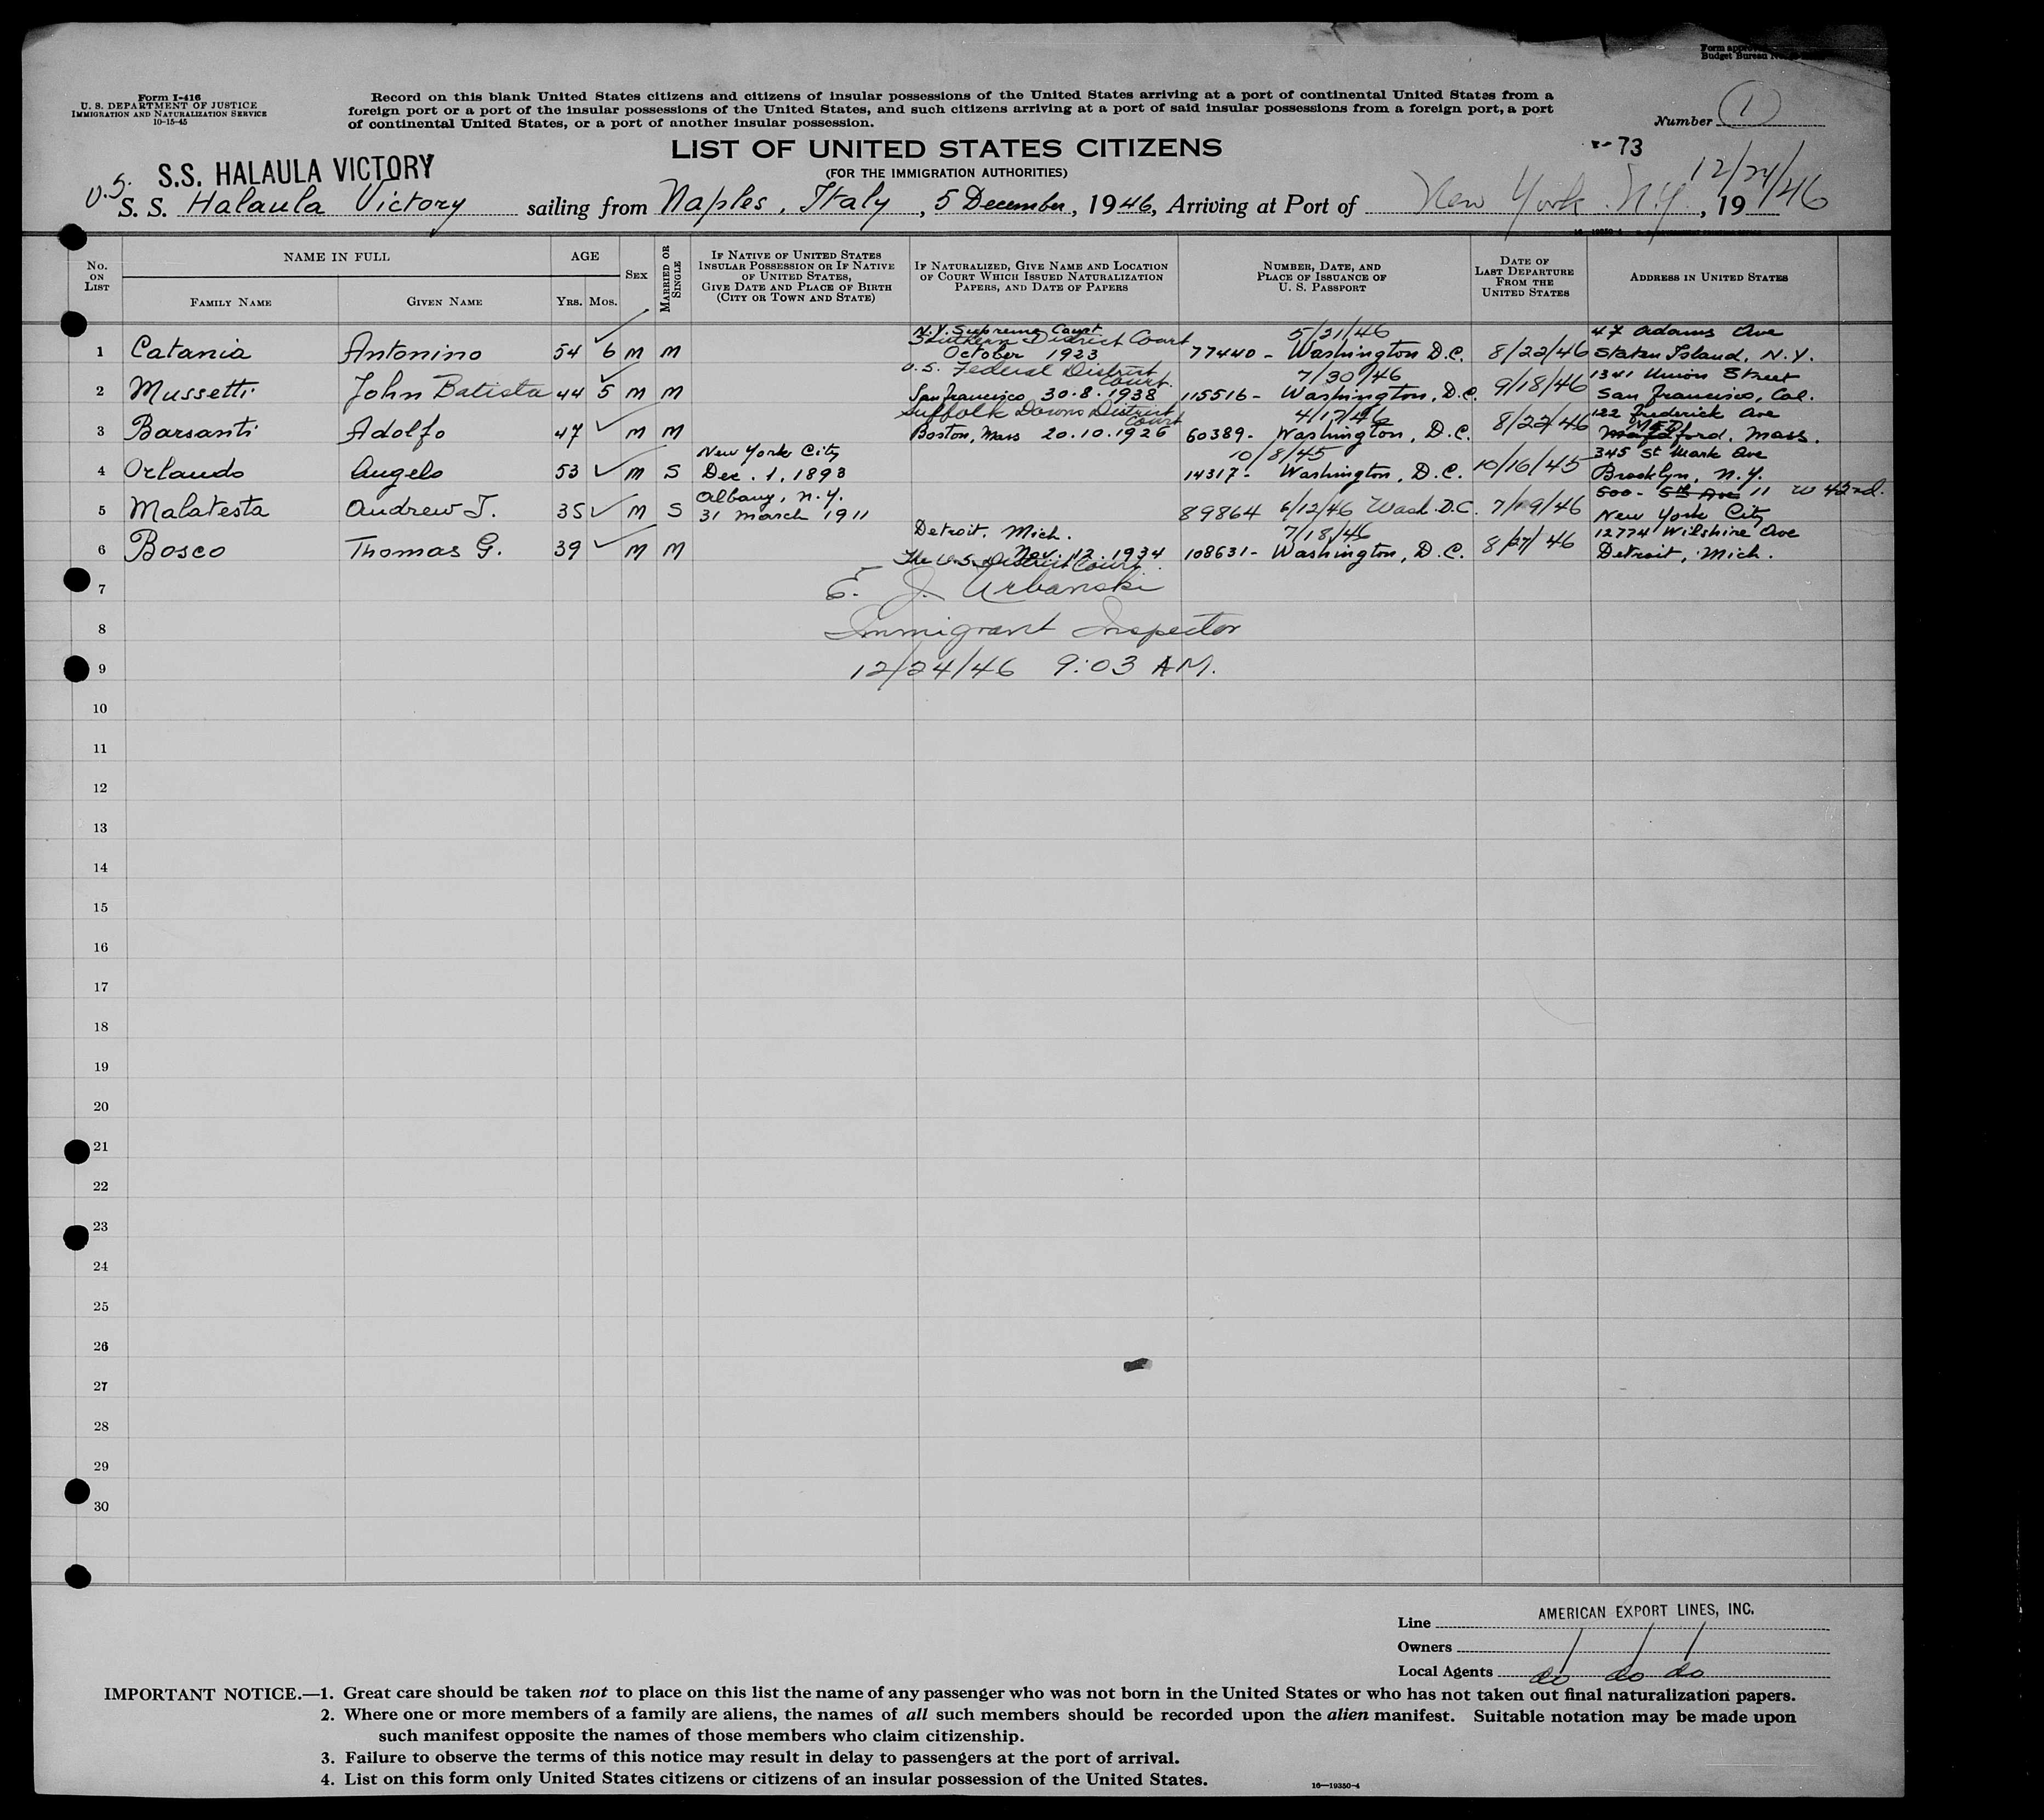 Form approv
Budget Bureau No.
Form I-416
U. S. DEPARTMENT OF JUSTICE
IMMIGRATION AND NATURALIZATION SERVICE
10-15-45
Record on this blank United States citizens and citizens of insular possessions of the United States arriving at a port of continental United States from a
foreign port or a port of the insular possessions of the United States, and such citizens arriving at a port of said insular possessions from a foreign port, a port
of continental United States, or a port of another insular possession.
Number 1
73
LIST OF UNITED STATES CITIZENS
(FOR THE IMMIGRATION AUTHORITIES)
S.S. HALAULA VICTORY
U.S. S. S. Halaula Victory sailing from Naples, Italy, 5 December, 1946, Arriving at Port of New York. N.Y., 19 12/24/46
No. ON LIST
NAME IN FULL
FAMILY NAME
GIVEN NAME
AGE
YRS. MOS.
SEX
MARRIED OR SINGLE
IF NATIVE OF UNITED STATES
INSULAR POSSESSION OR IF NATIVE
OF UNITED STATES,
GIVE DATE AND PLACE OF BIRTH
(CITY OR TOWN AND STATE)
IF NATURALIZED, GIVE NAME AND LOCATION
OF COURT WHICH ISSUED NATURALIZATION
PAPERS, AND DATE OF PAPERS
NUMBER, DATE, AND
PLACE OF ISSUANCE OF
U. S. PASSPORT
DATE OF
LAST DEPARTURE
FROM THE
UNITED STATES
ADDRESS IN UNITED STATES
N.Y. Supreme Court 5/21/46 47 Adams Ave
Southern District Court
1 Catania Antonino 54 6 M M October 1923 77440 - Washington D.C. 8/22/46 Staten Island, N.Y.
U.S. Federal District Court 7/30/46 1341 Union Street
2 Mussetti John Batista 44 5 M M San Francisco 30.8.1938 115516 - Washington, D.C. 9/18/46 San Francisco, Cal.
Suffolk Downs District Court 4/17/46 122 Frederick Ave
3 Barsanti Adolfo 47 M M Boston, Mass 20.10.1926 60389 - Washington, D.C. 8/22/46 MEDford. Mass.
New York City 10/8/45 345 St Mark Ave
4 Orlando Angelo 53 M S Dec. 1, 1893 14317 - Washington, D.C. 10/16/45 Brooklyn, N.Y.
Albany, N.Y. 500 - 5th Ave 11 W 42nd.
5 Malatesta Andrew J. 35 M S 31 March 1911 89864 6/12/46 Wash. D.C. 7/19/46 New York City
Detroit, Mich. 7/18/46 12774 Wilshire Ave
6 Bosco Thomas G. 39 M M Nov. 12. 1934 108631 - Washington, D.C. 8/27/46 Detroit, Mich.
The U.S. District Court
7 E. J. Urbanski
8 Immigrant Inspector
9 12/24/46 9:03 AM.
10
11
12
13
14
15
16
17
18
19
20
21
22
23
24
25
26
27
28
29
30
Line AMERICAN EXPORT LINES, INC.
Owners
Local Agents do do do
IMPORTANT NOTICE.—1. Great care should be taken not to place on this list the name of any passenger who was not born in the United States or who has not taken out final naturalization papers.
2. Where one or more members of a family are aliens, the names of all such members should be recorded upon the alien manifest. Suitable notation may be made upon
such manifest opposite the names of those members who claim citizenship.
3. Failure to observe the terms of this notice may result in delay to passengers at the port of arrival.
4. List on this form only United States citizens or citizens of an insular possession of the United States.
16—19350-4